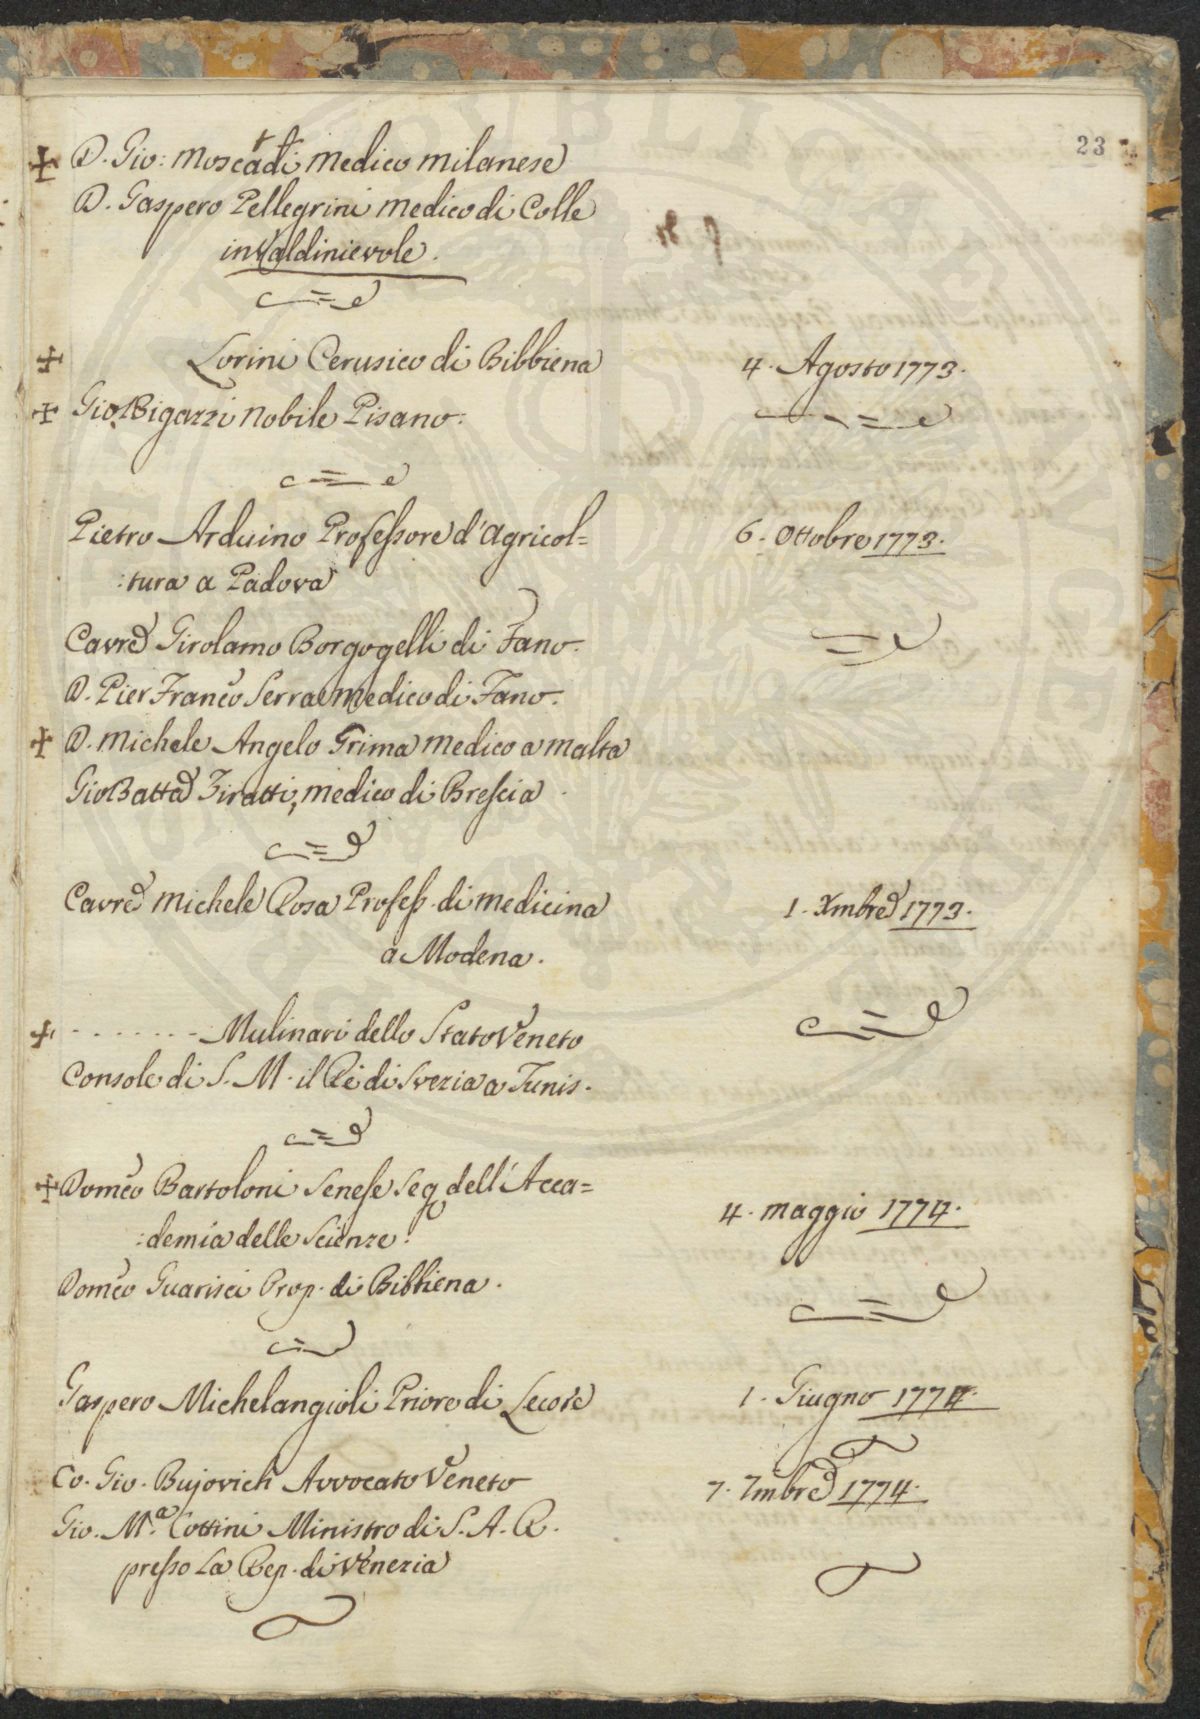 23
✠ D. Gio: Moscati Medico Milanese
D. Gaspero Pellegrini Medico di Colle
in Valdinievole.
✠ Lorini Cerusico di Bibbiena 4. Agosto 1773.
✠ Gio. Bigazzi Nobile Pisano.
Pietro Arduino Professore d'Agricol=
:tura a Padova
6. Ottobre 1773.
Cavre Girolamo Borgogelli di Fano.
D. Pier Franco Serra Medico di Fano.
✠ D. Michele Angelo Grima Medico a Malta
Gio Batta Ziratti, Medico di Brescia
Cavre Michele Rosa Profess. di Medicina 1. Xmbre 1773.
a Modena.
✠ . . . . . . . - Mulinari dello Stato Veneto
Console di S. M. il Re di Svezia a Tunis.
✠ Domco Bartoloni Senese Seg. dell'Acca=
:demia delle Scienze.
4. Maggio 1774.
Domco Guarisci Prop. di Bibbiena.
Gaspero Michelangioli Priore di Lecore 1. Giugno 1774.
Co. Gio. Bujovich Avvocato Veneto 7. 7mbre 1774.
Gio. Ma. Cottini Ministro di S. A. R.
presso La Rep. di Venezia